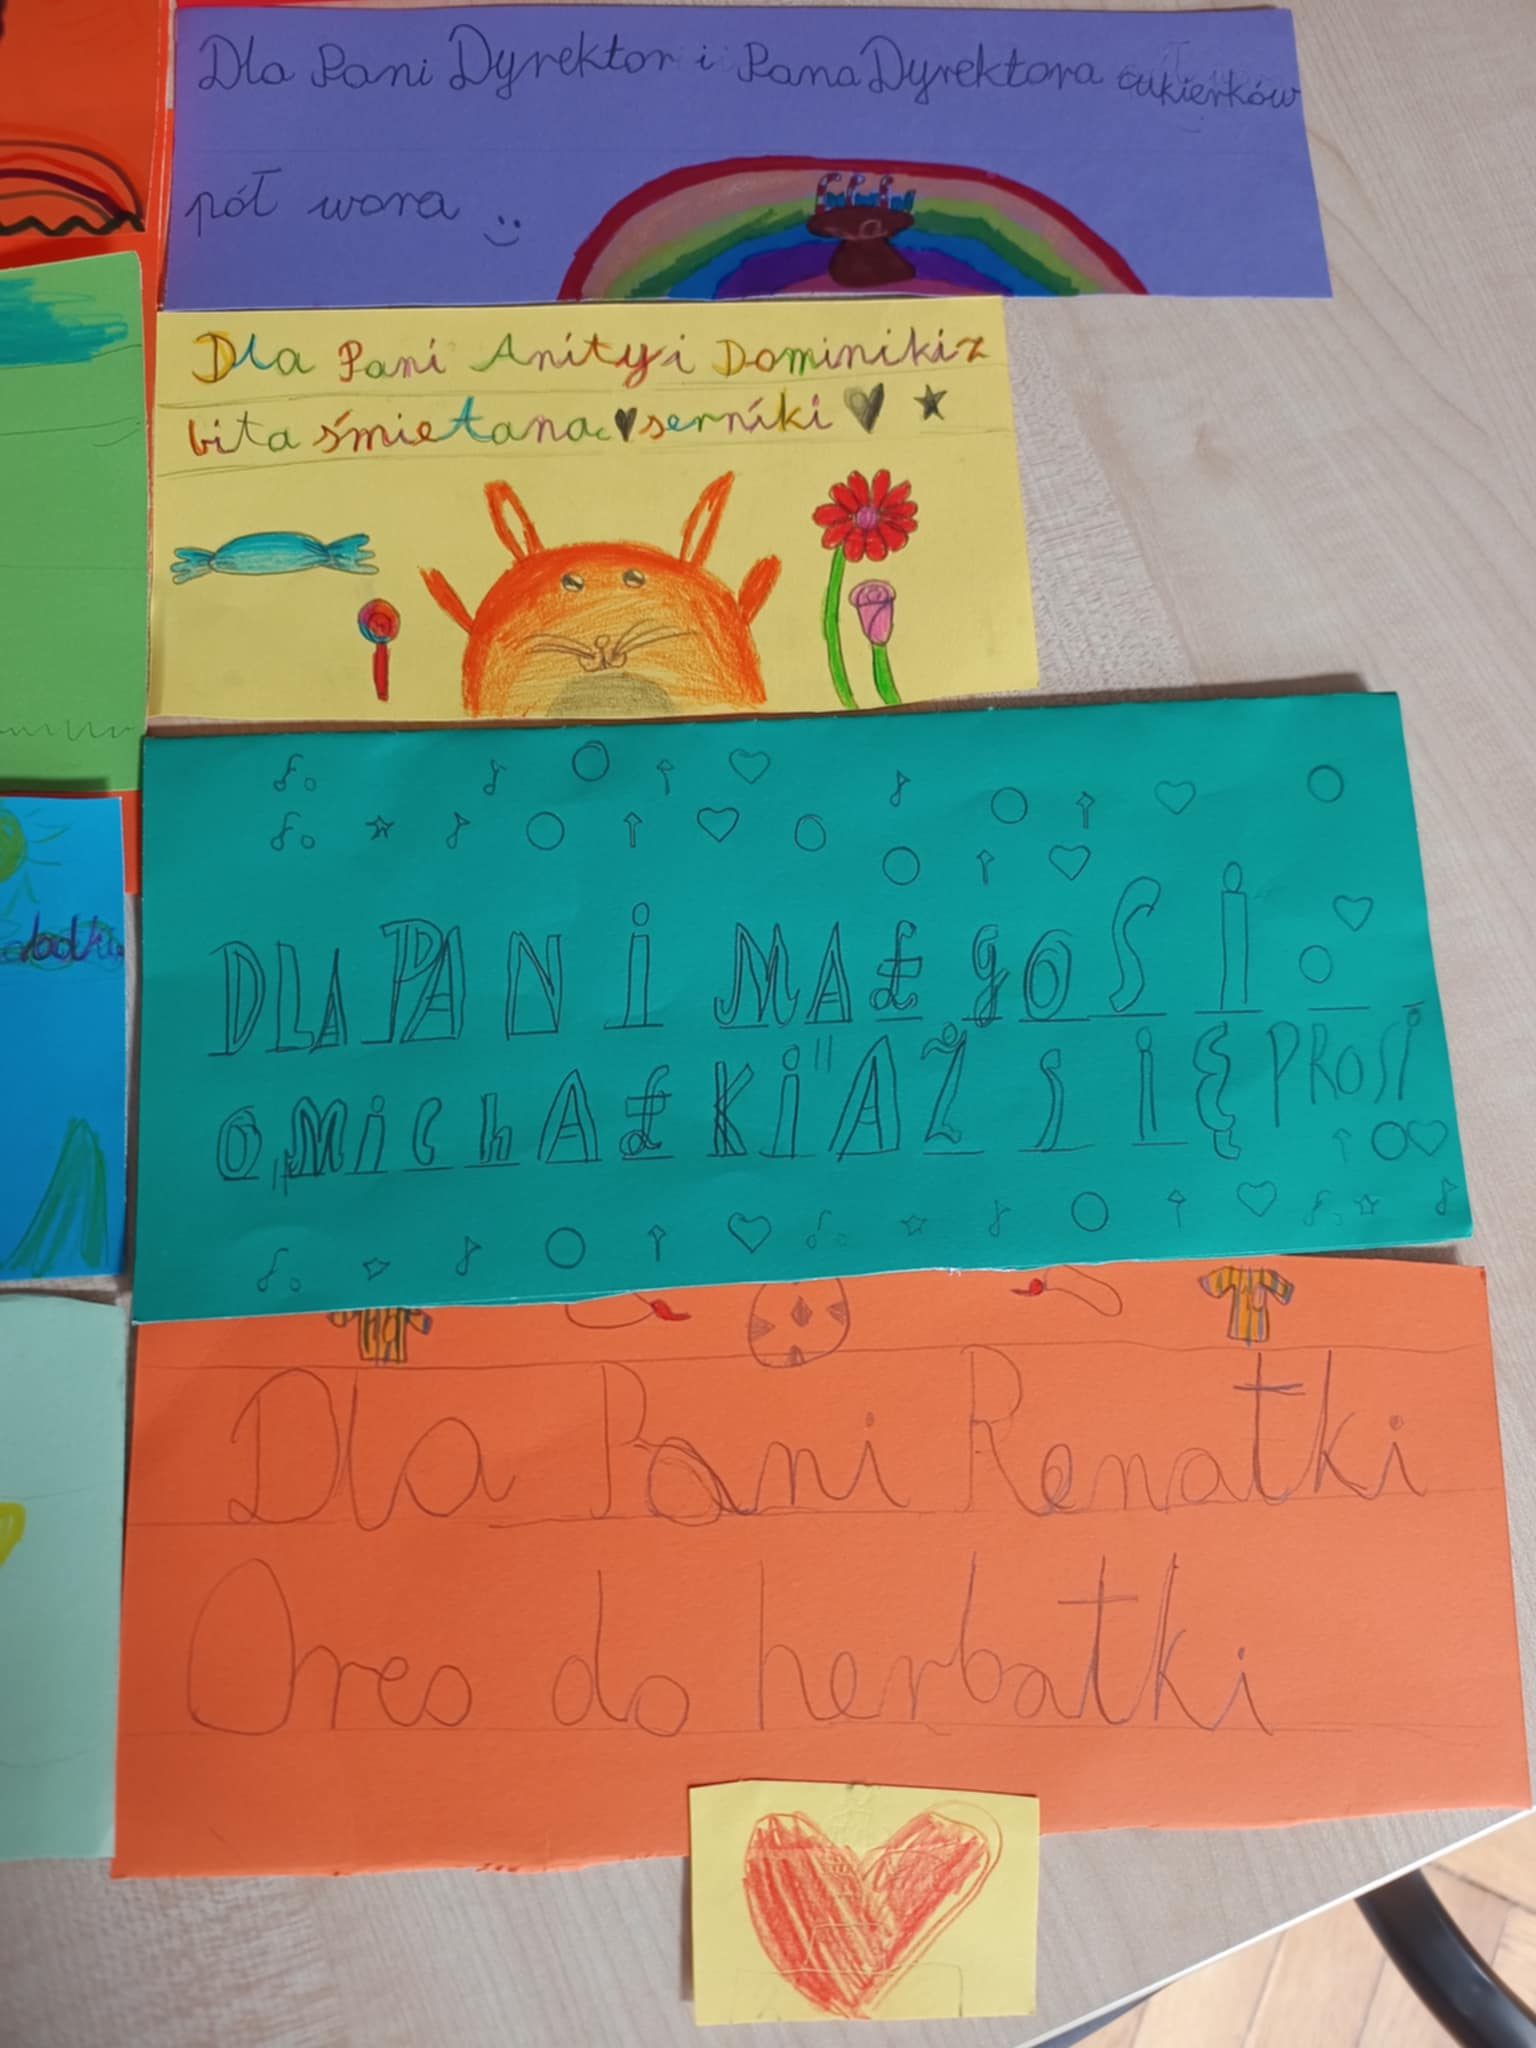 Dla Pani Dyrektor i Pana Dyrektora cukierków
pół wora
Dla Pani Anity i Dominiki z
bita śmietana serniki
DLA PANI MAŁgOSI
O „MiChAŁKi” AŻ SIĘ PROSI
Dla Pani Renatki
Oreo do herbatki